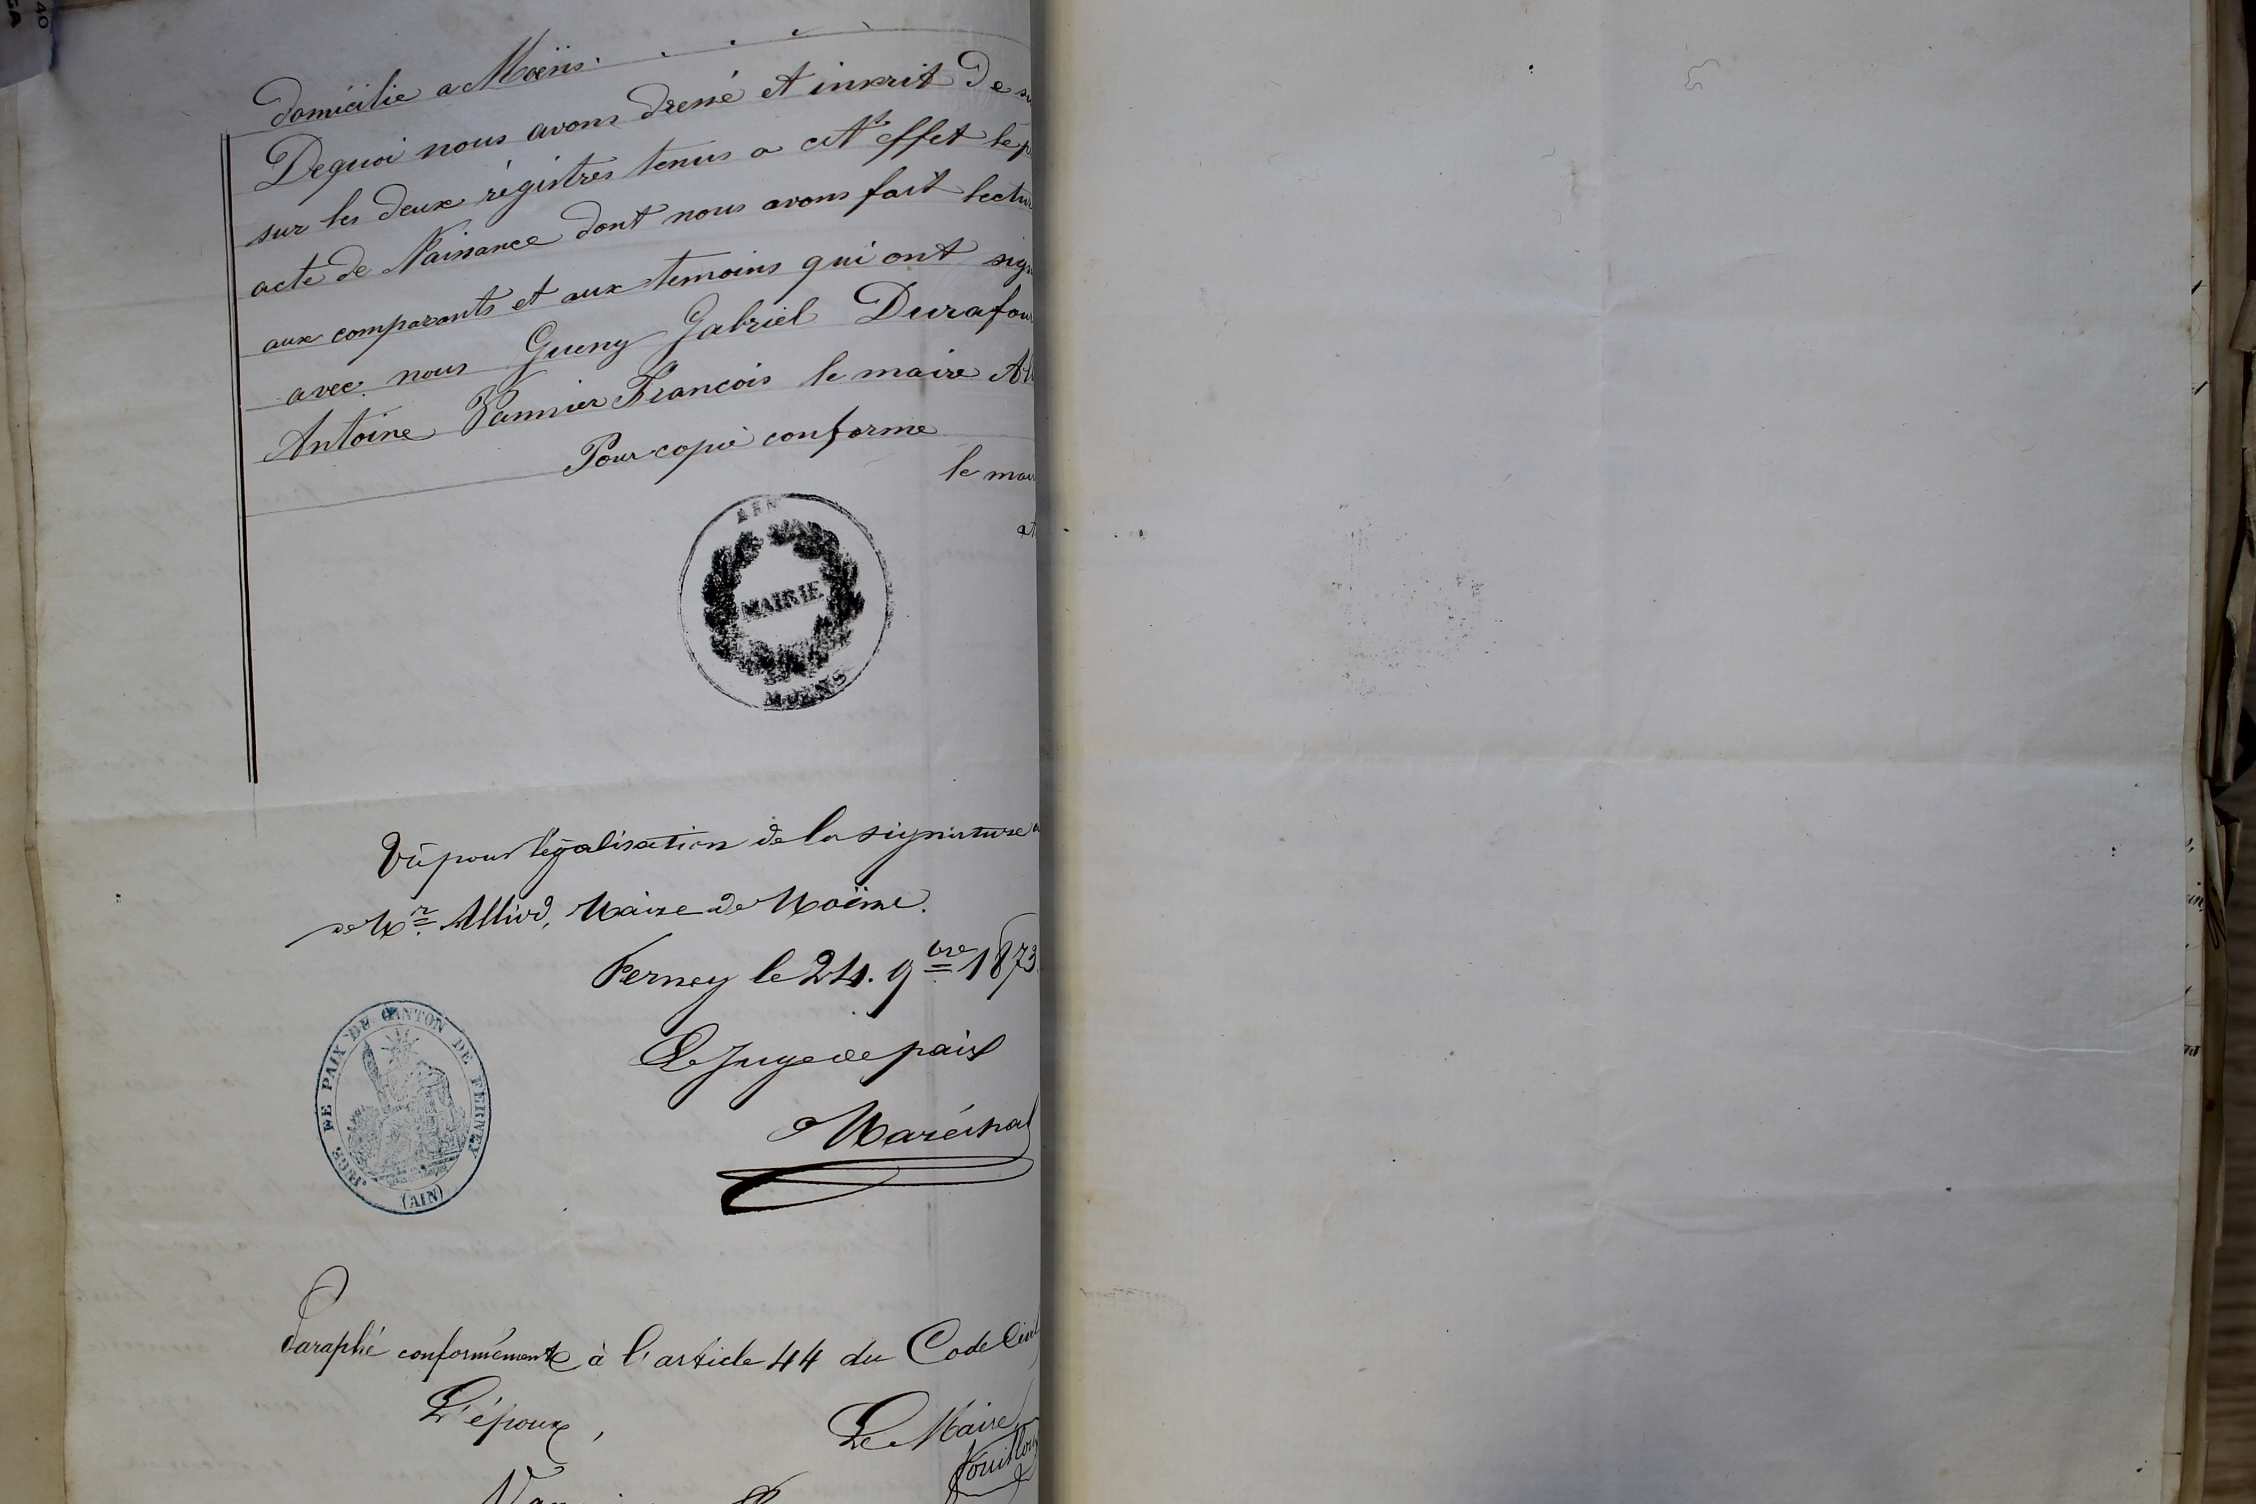 40
GA
domicilie a Moëns.
Dequoi nous avons dressé et inscrit De su
sur les deux régistres tenus a cet effet le p
acte de Naissance dont nous avons fait lectur
aux comparants et aux temoins qui ont sign
avec nous Gueny Gabriel Durafou
Antoine Vannier François le maire All
Pour copie conforme
le mai
AIN
MAIRIE
MOENS
Vu pour légalisation de la signature
de Mr. Alliod, Maire de Moëns.
Ferney le 24. 9bre 1873.
Le Juge de paix
Maréchal
JUGE DE PAIX DE CANTON DE FERNEY
(AIN)
Paraphé conformément à l'article 44 du Code Civil
L'époux, Le Maire